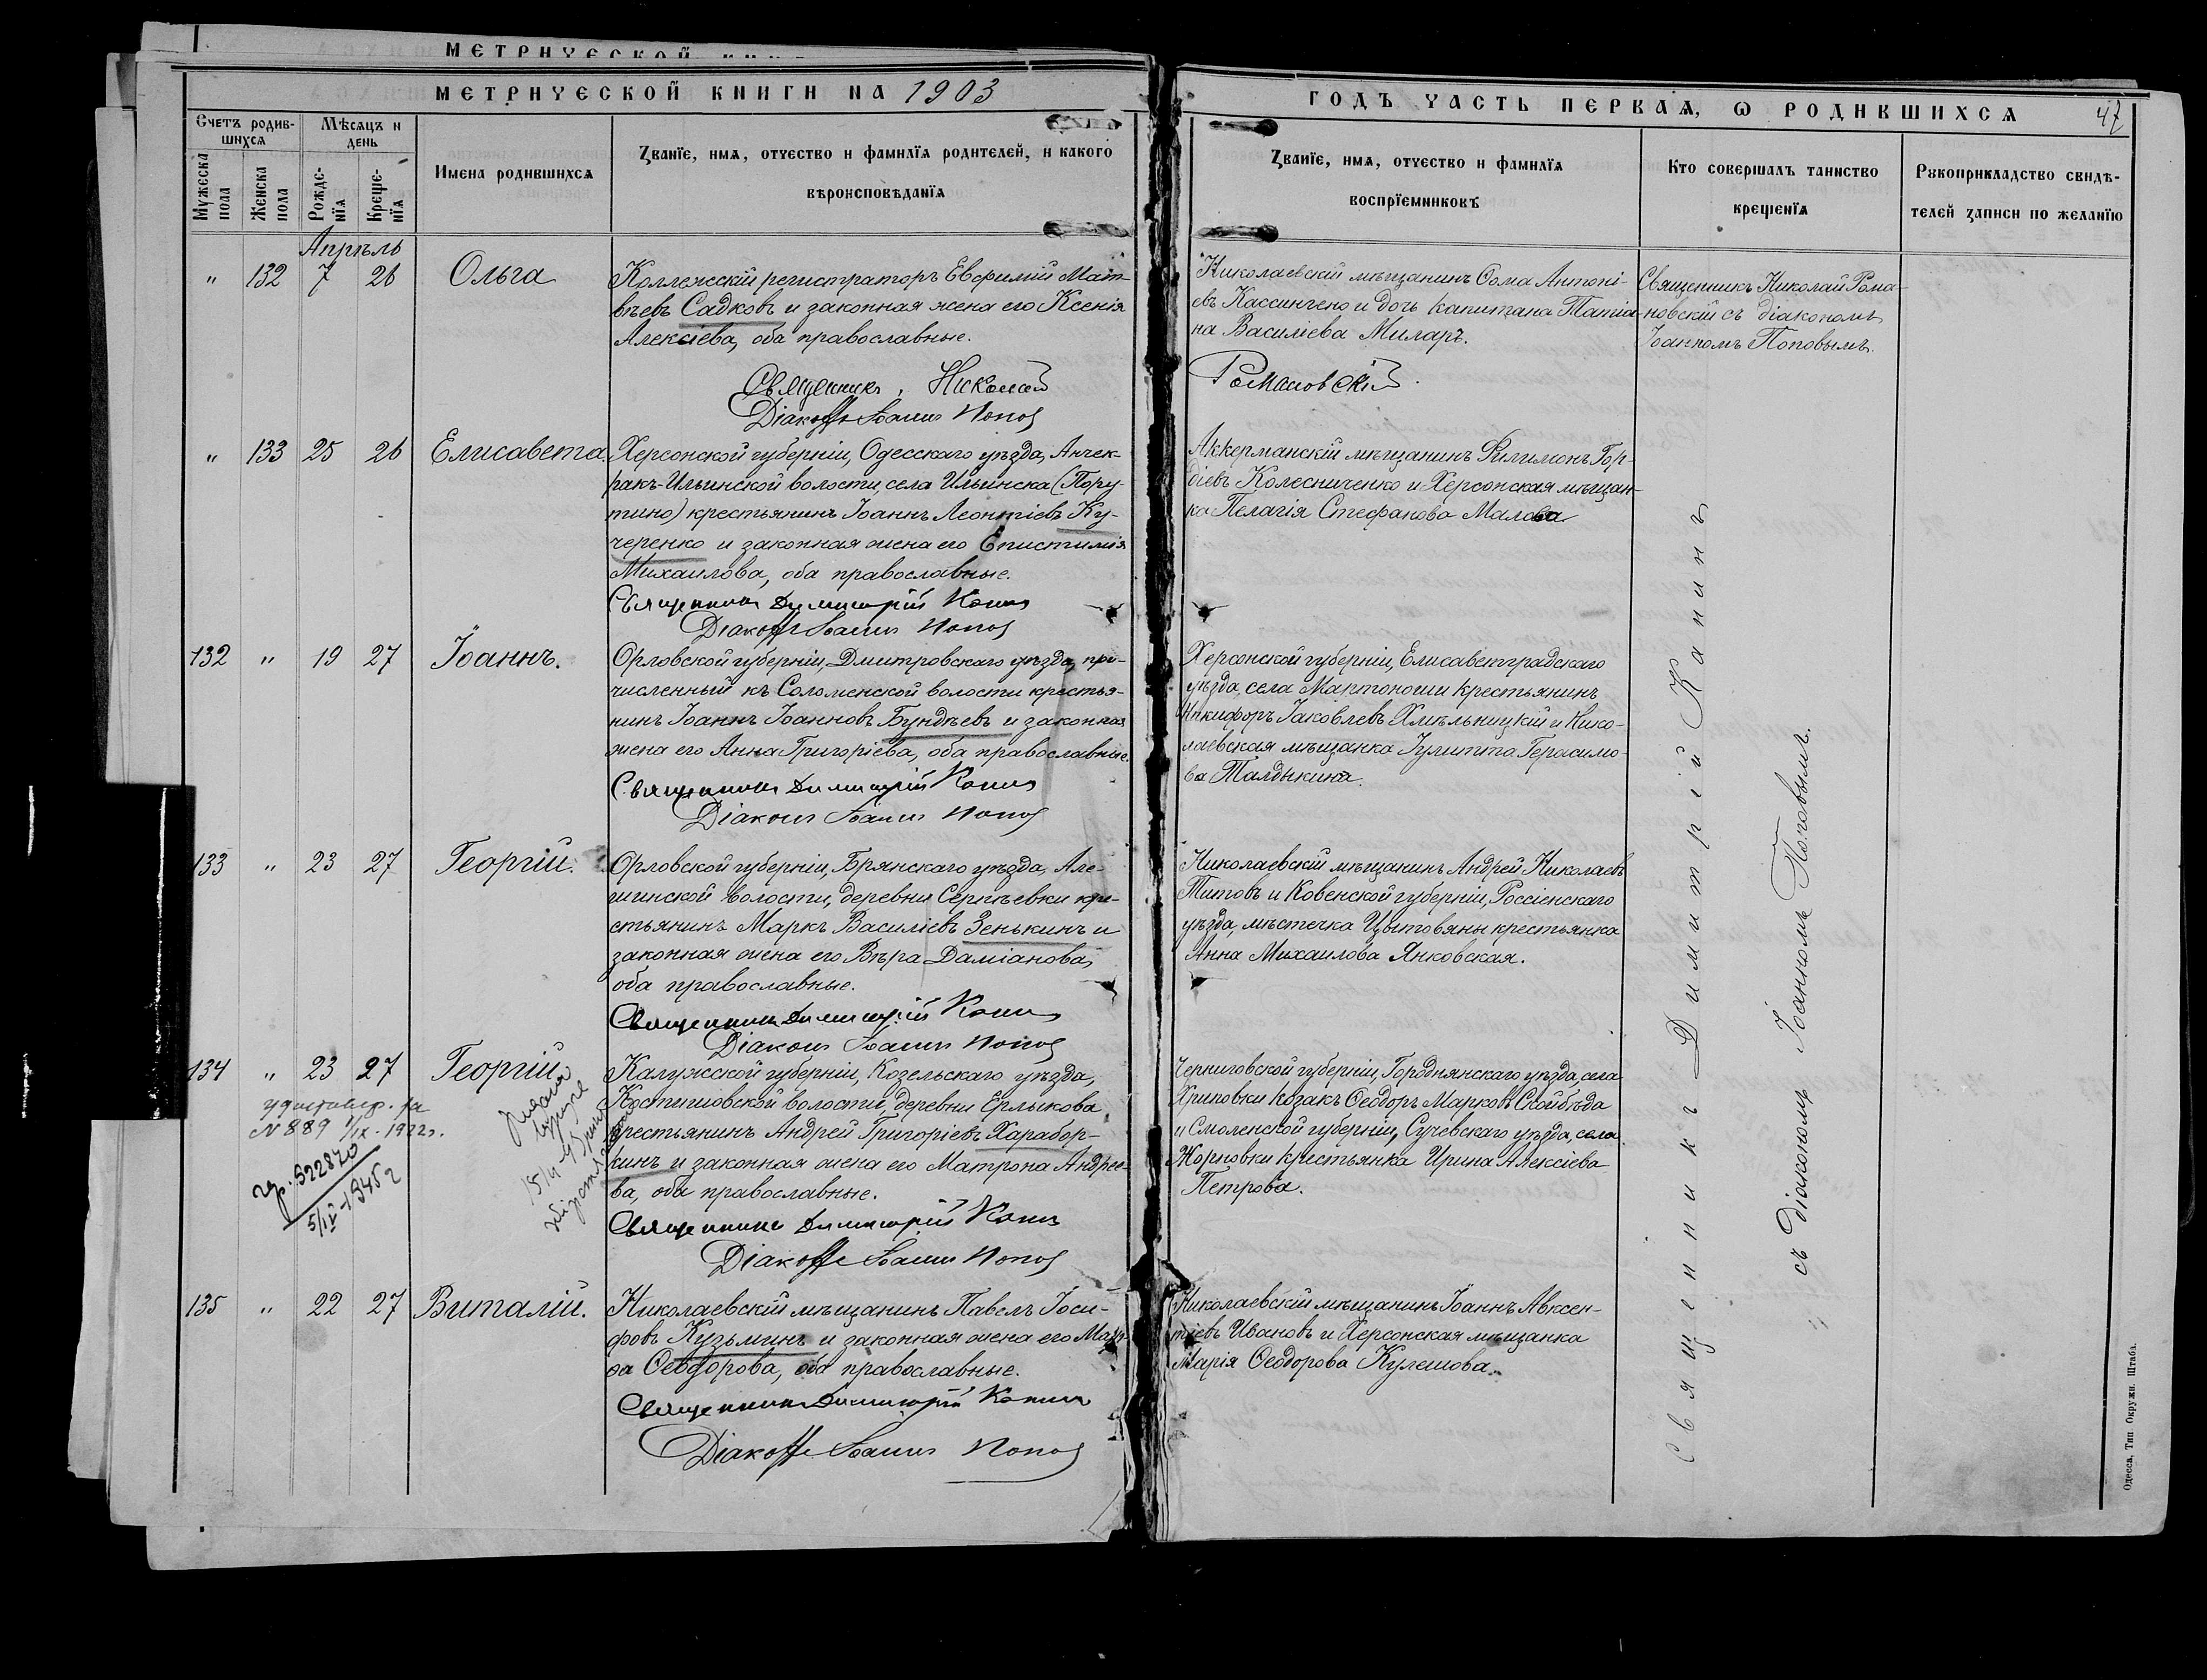 МЕТРИЧЕСКОЙ
МЕТРИЧЕСКОЙ КНИГИ НА 1903
ГОДЪ ЧАСТЬ ПЕРВАѦ, Ѡ РОДИВШИХСѦ
47
Счетъ родив-
шихсѧ
Мѣсѧцъ и
день
Мужеска
пола
Женска
пола
Рожде-
нїѧ
Креще-
нїѧ
Имена родившихсѧ
Званїе, имѧ, отчество и фамилїѧ родителей, и какого
вѣроисповѣданїѧ
Званїе, имѧ, отчество и фамилїѧ
воспрїемниковъ
Кто совершалъ таинство
крещенїѧ
Рукоприкладство свидѣ-
телей записи по желанїю
Апрѣль
" 132 7 26 Ольга
Коллежскій регистраторъ Евфимій Мат-
вѣевъ Садковъ и законная жена его Ксенія
Алексіева, оба православные.
Священникъ Николай
Діаконъ Іоаннъ Поповъ
Николаевскій мѣщанинъ Ѳома Антоні-
евъ Кассинчено и дочь капитана Татіа-
на Василіева Миларъ.
Романовскій
Священникъ Николай Рома-
новскій съ діакономъ
Іоанномъ Поповымъ.
" 133 25 26 Елисавета.
Херсонской губерніи, Одесскаго уѣзда, Анчек-
ракъ-Ильинской волости, села Ильинска (Пору-
тино) крестьянинъ Іоаннъ Леонтіевъ Ку-
черенко и законная жена его Епистимія
Михаилова, оба православные.
Священникъ Димитрій Канинъ
Діаконъ Іоаннъ Поповъ
Аккерманскій мѣщанинъ Филимонъ Гор-
діевъ Колесниченко и Херсонская мѣщан-
ка Пелагія Стефанова Малова
132 " 19 27 Іоаннъ.
Орловской губерніи, Дмитровскаго уѣзда, при-
численный къ Соломенской волости крестья-
нинъ Іоаннъ Іоанновъ Бундѣевъ и законная
жена его Анна Григоріева, оба православные.
Священникъ Димитрій Канинъ
Діаконъ Іоаннъ Поповъ
Херсонской губерніи, Елисаветградскаго
уѣзда, села Мартоноши крестьянинъ
Никифоръ Іаковлевъ Хмѣльницкій и Нико-
лаевская мѣщанка Іулитта Герасимо-
ва Талдыкина.
133 " 23 27 Георгій.
Орловской губерніи, Брянскаго уѣзда, Але-
шинской волости, деревни Сергѣевки кре-
стьянинъ Маркъ Василіевъ Зенькинъ и
законная жена его Вѣра Даміанова,
оба православные.
Священникъ Димитрій Канинъ
Діаконъ Іоаннъ Поповъ
Николаевскій мѣщанинъ Андрей Николаевъ
Титовъ и Ковенской губерніи, Россіенскаго
уѣзда, мѣстечка Цытовяны крестьянка
Анна Михаилова Янковская.
134 " 23 27 Георгій
удостовер. за
N 889 1/IX - 1922 г.
5/IV-1945 г
Калужской губерніи, Козельскаго уѣзда,
Костешовской волости, деревни Ерлыкова
крестьянинъ Андрей Григоріевъ Харабор-
кинъ и законная жена его Матрона Андрее-
ва, оба православные.
Священникъ Димитрій Канинъ
Діаконъ Іоаннъ Поповъ
Черниговской губерніи, Городнянскаго уѣзда, села
Хриповки козакъ Ѳеодоръ Марковъ Скойбѣда
и Смоленской губерніи, Сучевскаго уѣзда, села
Жорновки крестьянка Ирина Алексіева
Петрова.
135 " 22 27 Виталій.
Николаевскій мѣщанинъ Павелъ Іоси-
фовъ Кузьминъ и законная жена его Мар-
ѳа Ѳеодорова, оба православные.
Священникъ Димитрій Канинъ
Діаконъ Іоаннъ Поповъ
Николаевскій мѣщанинъ Іоаннъ Авксен-
тіевъ Ивановъ и Херсонская мѣщанка
Марія Ѳеодорова Кулешова.
Священникъ Димитрій Канинъ
съ діакономъ Іоанномъ Поповымъ.
Одесса, Тип Окружн. Штаба.